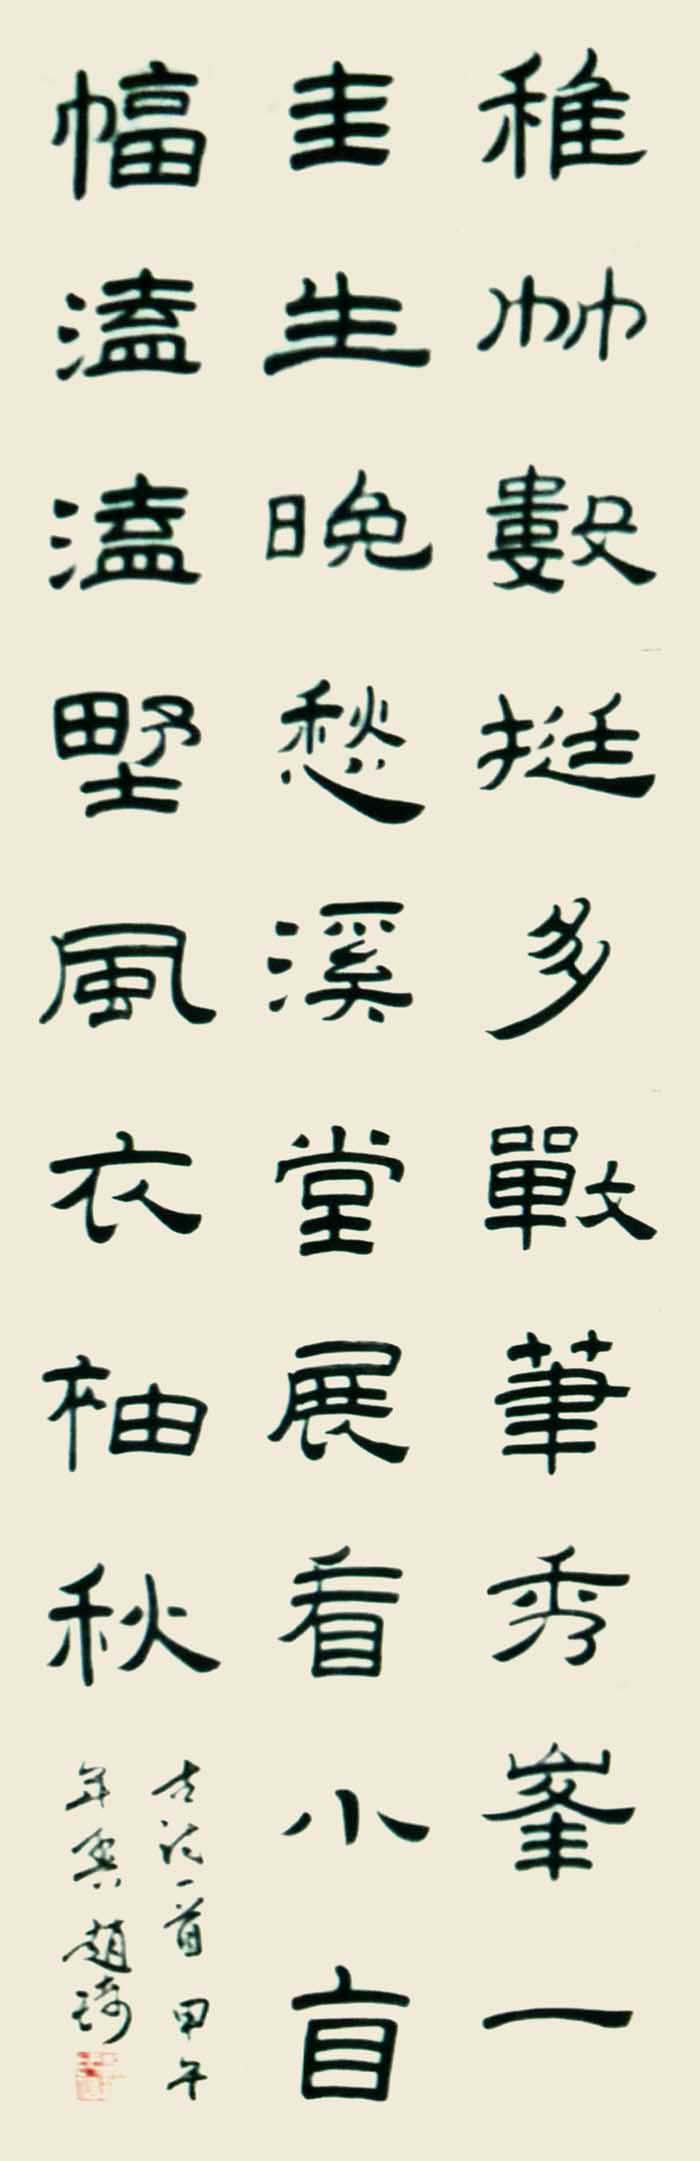 稚竹數挺多戰筆秀峯一
圭生晚愁溪堂展看小盲
幅溘溘野風衣袖秋
古诗一首 甲午
年 趙琦